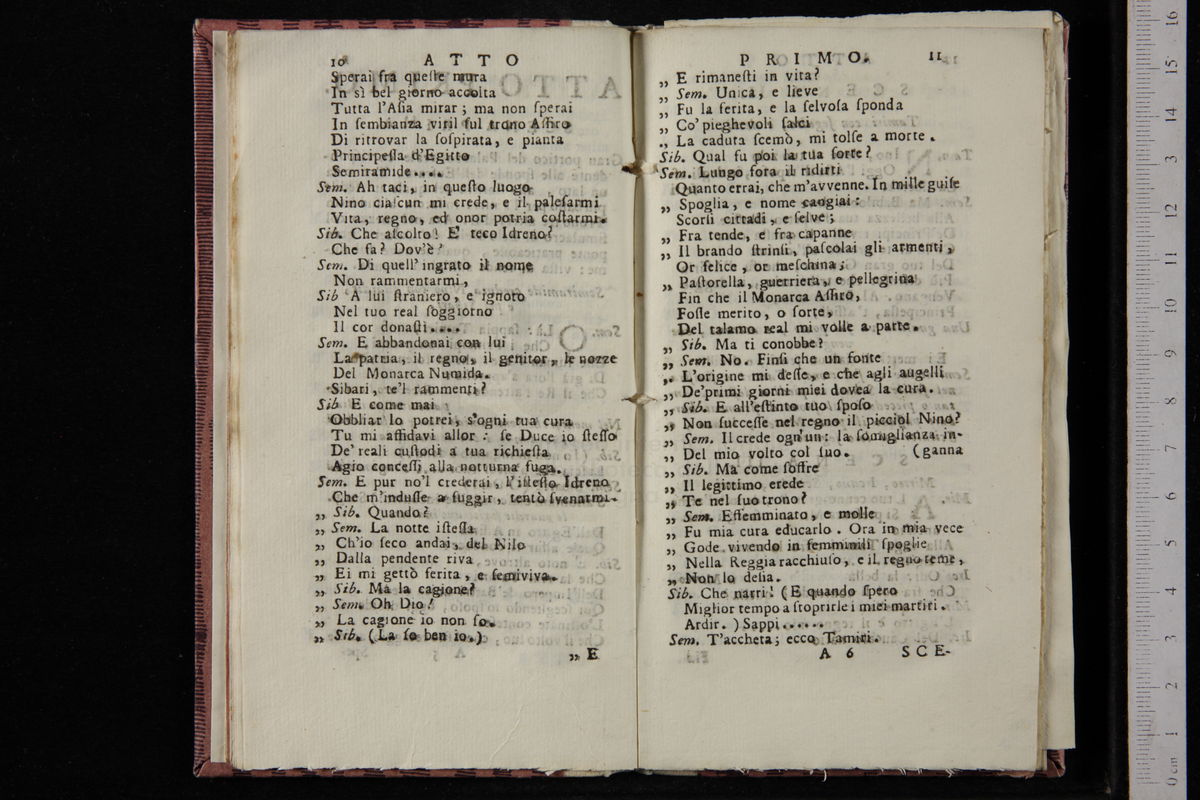 10 ATTO
Sperai fra queſte mura
In sì bel giorno accolta
Tutta l'Aſia mirar; ma non ſperai
In ſembianza viril ſul trono Aſſiro
Di ritrovar la ſoſpirata, e pianta
Principeſſa d'Egitto
Semiramide....
Sem. Ah taci, in queſto luogo
Nino ciaſcun mi crede, e il paleſarmi
Vita, regno, ed onor potria coſtarmi.
Sib. Che aſcolto! E' teco Idreno?
Che fa? Dov'è?
Sem. Di quell'ingrato il nome
Non rammentarmi,
Sib A lui ſtraniero, e ignoto
Nel tuo real ſoggiorno
Il cor donaſti....
Sem. E abbandonai con lui
La patria, il regno, il genitor, le nozze
Del Monarca Numida.
Sibari, te'l rammenti?
Sib E come mai
Obbliar lo potrei, s'ogni tua cura
Tu mi affidavi allor: ſe Duce io ſteſſo
De' reali cuſtodi a tua richieſta
Agio conceſſi alla notturna fuga.
Sem. E pur no'l crederai, l'iſteſſo Idreno
Che m'induſſe a fuggir, tentò ſvenarmi.
„ Sib. Quando?
„ Sem. La notte iſteſſa
„ Ch'io ſeco andai, del Nilo
„ Dalla pendente riva
„ Ei mi gettò ferita, e ſemiviva.
„ Sib. Ma la cagione?
„ Sem. Oh Dio!
„ La cagione io non ſo.
„ Sib. (La ſo ben io.)
„ E
PRIMO. 11
„ E rimaneſti in vita?
„ Sem. Unica, e lieve
„ Fu la ferita, e la ſelvoſa ſponda
„ Co' pieghevoli ſalci
„ La caduta ſcemò, mi tolſe a morte.
Sib. Qual fu poi la tua ſorte?
Sem. Lungo fora il ridirti
Quanto errai, che m'avvenne. In mille guiſe
„ Spoglia, e nome cangiai:
Scorſi cittadi, e ſelve;
„ Fra tende, e fra capanne
„ Il brando ſtrinſi, paſcolai gli armenti,
Or felice, or meſchina;
„ Paſtorella, guerriera, e pellegrina
Fin che il Monarca Aſſiro,
Foſſe merito, o ſorte,
Del talamo real mi volle a parte.
„ Sib. Ma ti conobbe?
„ Sem. No. Finſi che un fonte
„ L'origine mi deſſe, e che agli augelli
„ De'primi giorni miei dovea la cura.
„ Sib. E all'eſtinto tuo ſpoſo
„ Non ſucceſſe nel regno il picciol Nino?
„ Sem. Il crede ogn'un: la ſomiglianza in-
„ Del mio volto col ſuo. (ganna
„ Sib. Ma come ſoffre
„ Il legittimo erede
„ Te nel ſuo trono?
„ Sem. Effemminato, e molle
„ Fu mia cura educarlo. Ora in mia vece
„ Gode vivendo in femminili ſpoglie
„ Nella Reggia racchiuſo, e il regno teme,
„ Non lo deſia.
Sib. Che narri! (E quando ſpero
Miglior tempo a ſcoprirle i miei martiri.
Ardir.) Sappi......
Sem. T'accheta; ecco Tamiri.
A 6 SCE-